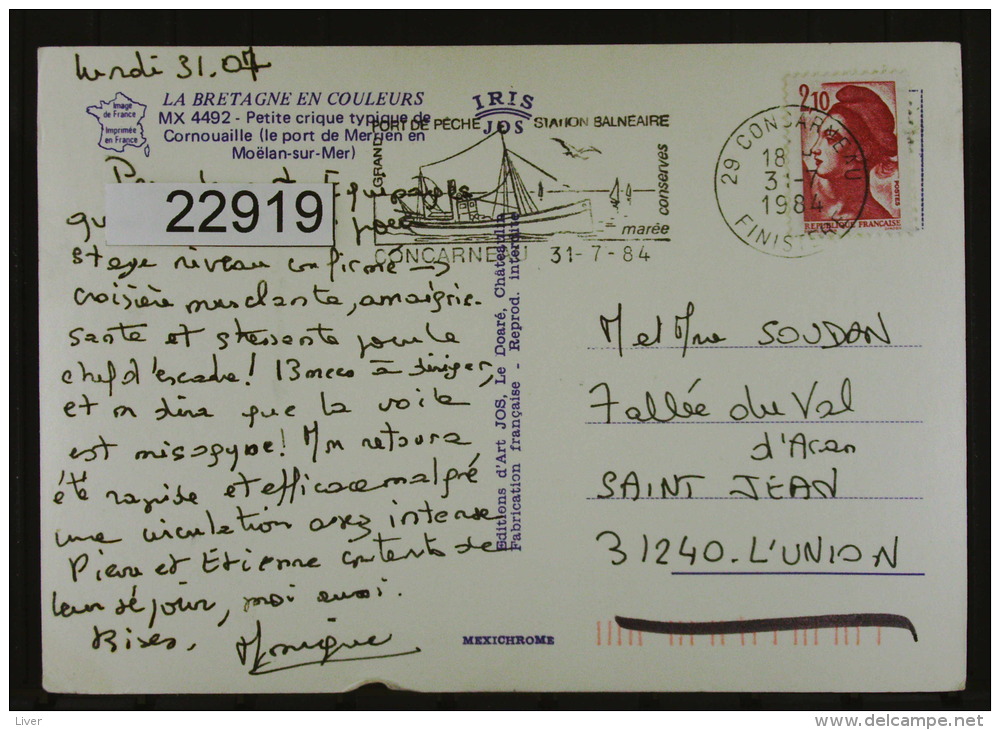 lundi 31.07
Image
de France
Imprimée
en France
LA BRETAGNE EN COULEURS
MX 4492 - Petite crique typique de
Cornouaille (le port de Merrien en
Moëlan-sur-Mer)
IRIS
JOS
GRAND PORT DE PÊCHE STATION BALNÉAIRE
marée conserves
CONCARNEAU 31-7-84
2,10
POSTES
REPUBLIQUE FRANÇAISE
29 CONCARNEAU
18 H
31-7
1984
FINISTERE
22919
stage niveau confirmé →
croisière musclante, amaigris-
sante et stressante pour le
chef d'escadre! 13 mecs à diriger,
et on dira que la voile
est misogyne! Mon retour a
été rapide et efficace malgré
une circulation assez intense
Pierre et Etienne contents de
leur séjour, moi aussi.
Bises. Monique
Editions d'Art JOS, Le Doaré, Châteaulin
Fabrication française - Reprod. interdite
MEXICHROME
M et Mme SOUDAN
7 allée du Val
d'Aran
SAINT JEAN
31240. L'UNION
Liver
delcampe.net